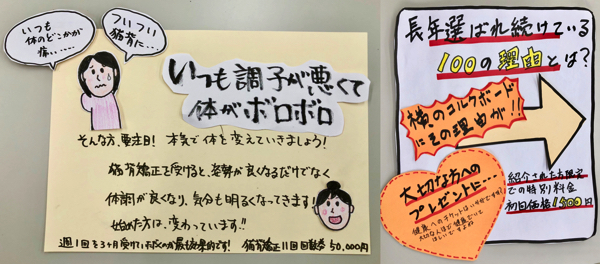 いつも
体のどこかが
痛い……
ついつい
猫背に…
いつも調子が悪くて
体がボロボロ
そんな方、要注目! 本気で体を変えていきましょう!
猫背矯正を受けると、姿勢が良くなるだけでなく
体調が良くなり、気分も明るくなってきます!
始めた方は、変わっています!!
週1回を3ヶ月受けていただくのが最も効果的です! 猫背矯正11回回数券 50,000円
長年選ばれ続けている
100の理由とは?
横のコルクボード
にその理由が!!
大切な方への
プレゼントに…
健康へのチケットはいかがですか?
大切な人ほど健康でいて
ほしいですよね
紹介された方限定
での特別料金
初回価格1,900円